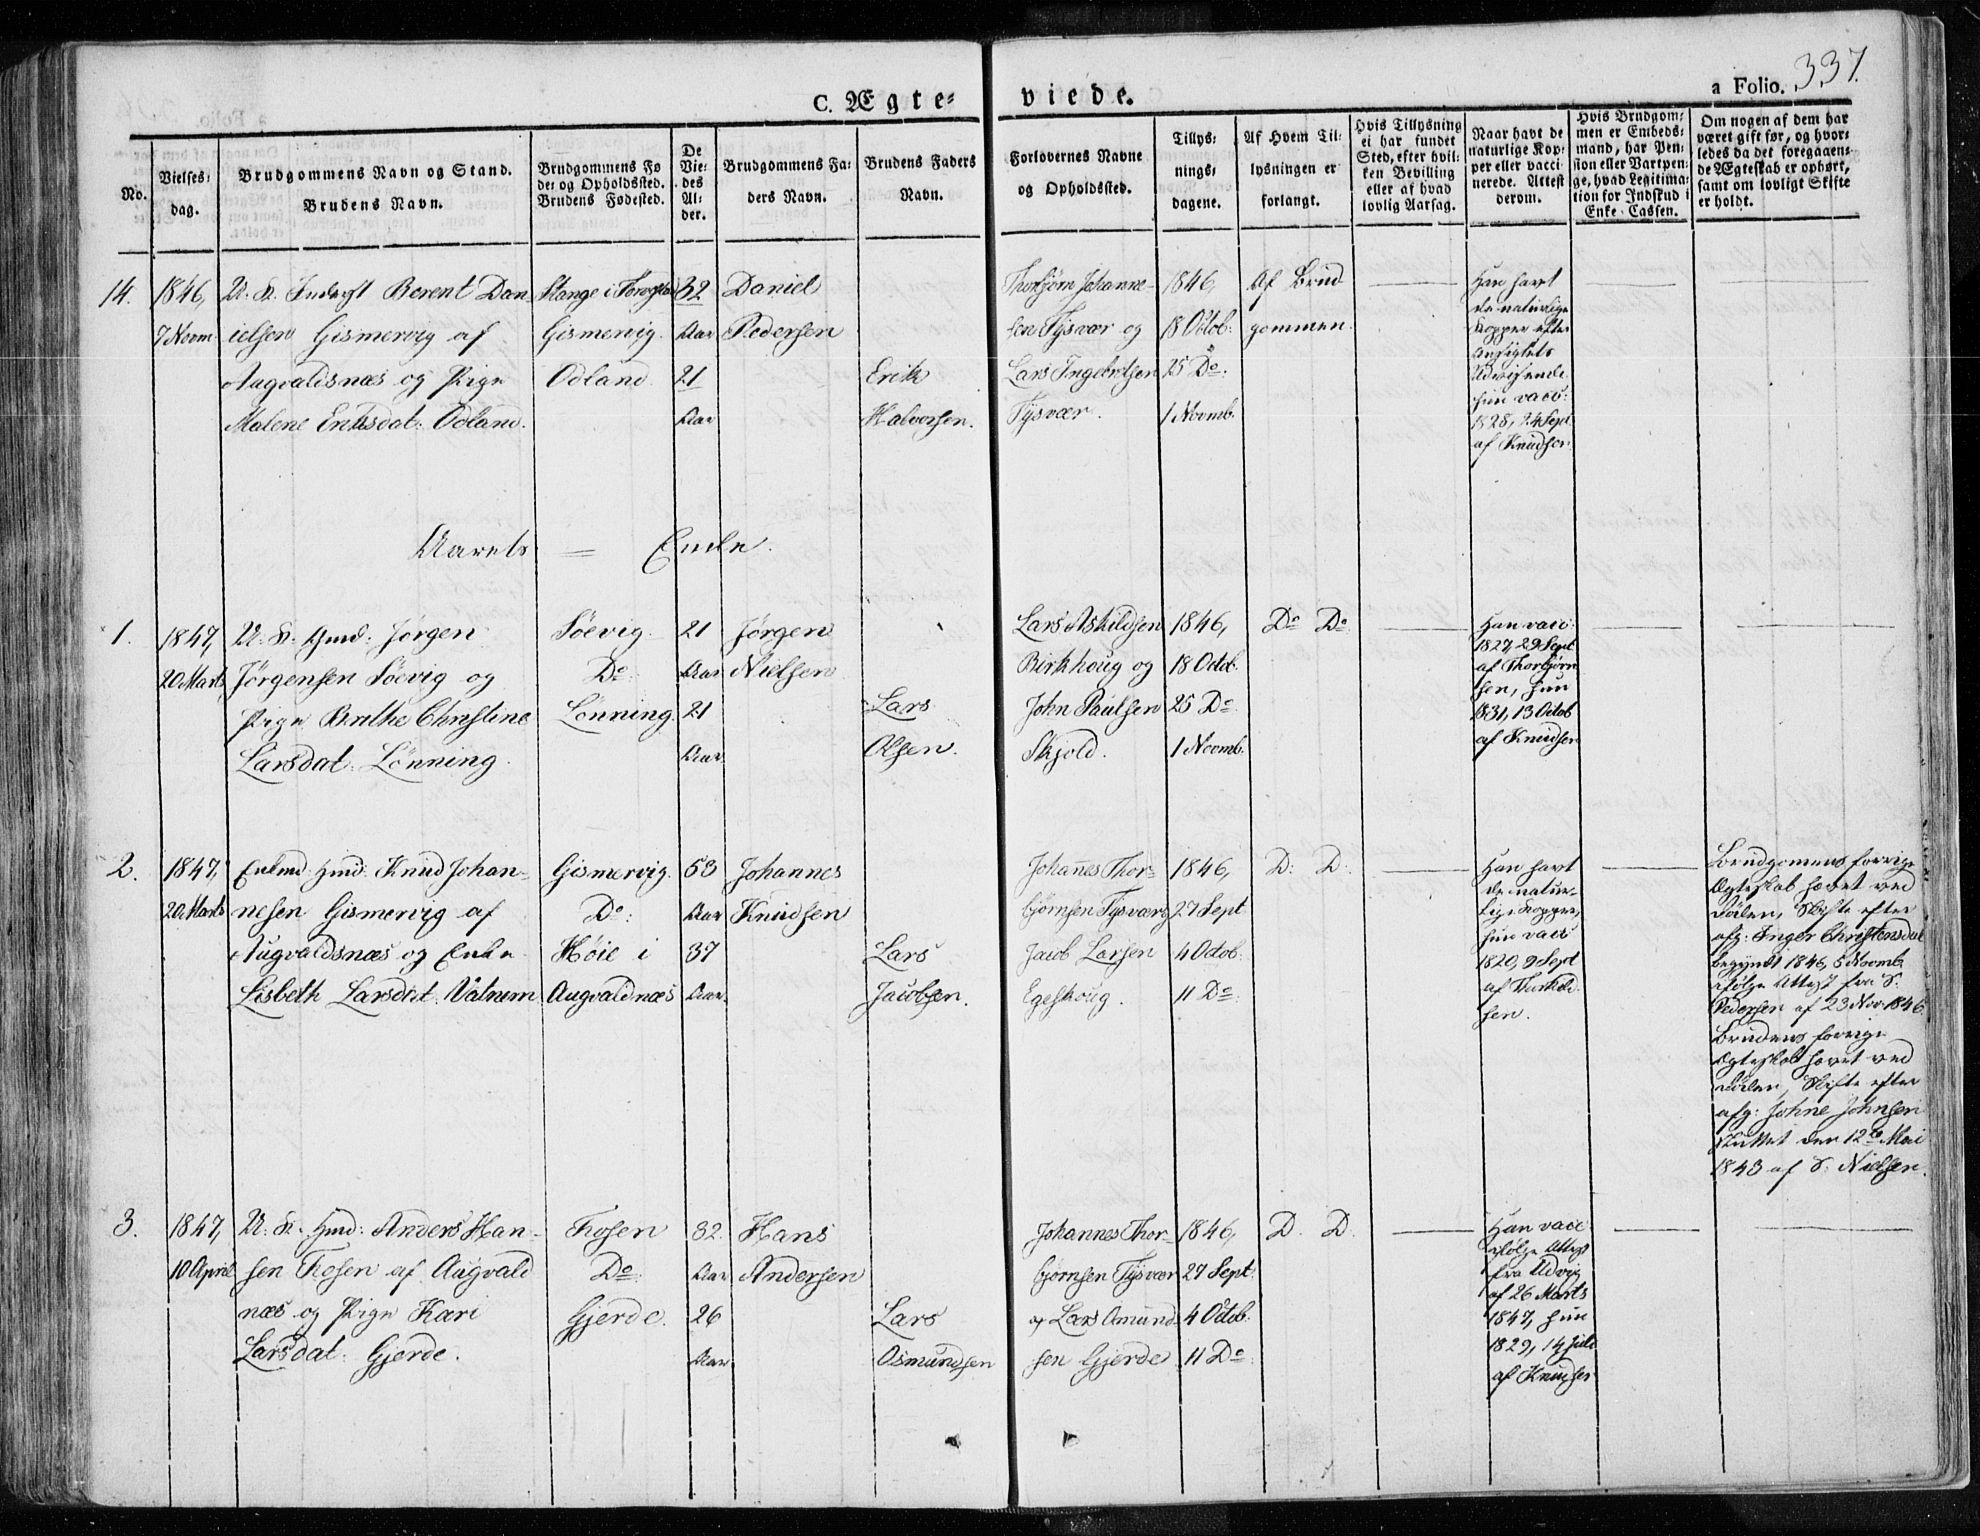 C. Ægte-
viede.
a Folio. 337.
No.
Vielses-
dag.
Brudgommens Navn og Stand.
Brudens Navn.
Brudgommens Fø
de- og Opholdssted.
Brudens Fødested.
De
Vie-
des
Al-
der.
Brudgommens Fa-
ders Navn.
Brudens Faders
Navn.
Forlovernes Navne
og Opholdsted.
Tillys-
nings-
dagene.
Af Hvem Til-
lysningen er
forlangt.
Hvis Tillysning
ei har fundet
Sted, efter hvil-
ken Bevilling
eller af hvad
lovlig Aarsag.
Naar havt de
naturlige Kop-
per eller vacci-
nerede. Attest
derom.
Hvis Brudgom-
men er Embeds-
mand, har Pen-
sion eller Vartpen-
ge, hvad Legitima-
tion for Indskud i
Enke-Cassen.
Om nogen af dem har
været gift før, og hvor-
ledes da det foregaaen-
de Ægteskab er ophørt,
samt om lovligt Skifte
er holdt.
14.
1846,
7 Novm
U. K. Inderst Berent Dan
ielsen Gismervig af
Augvaldsnæs og Pige
Malene Eriksdat. Ødland.
Stange i
Gismervig.
Ødland
32
Aar
21
Aar
Daniel
Pedersen
Erik
Halvorsen.
Thorbjørn Johanne-
sen Tysvær og
Lars Ingebretsen
Tysvær.
1846,
18 Octob:
25 Do.
1 Novmb.
Af Brud
gommen.
Han havt
de naturlige
Kopper efter
Ansigtets
Udvisende
hun vacc:
1828, 24 Sept
af Knudsen
Aarets = Ende.
1.
1847,
20 Marts
U. K. Gmd: Jørgen
Jørgensen Søevig og
Pige Brithe Christine
Larsdat: Lønning.
Søevig.
Do:
Lønning.
21
Aar
21
Aar
Jørgen
Nielsen
Lars
Olsen.
Lars Askildsen
Birkhoug og
John Paulsen
Skjold.
1846,
18 Octob.
25 Do
1 Novmb.
Do Do
Han vacc:
1827, 29 Sept
af Thorbjørn
sen, hun
1831, 13 Octob
af Knudsen
2.
1847,
20 Marts
Enkmd: Gmd: Knud Johan-
nesen Gismervig af
Augvaldsnæs og Enke
Lisbeth Larsdat. Vatnem
Gismervig.
Do:
Høie i
Augvaldnæs
53
Aar
37
Aar
Johannes
Knudsen
Lars
Jacobsen.
Johannes Thor-
bjørnsen Tysvær og
Jacob Larsen
Egeskoug.
1846,
27 Sept
4 Octob:
11 Do:
D: D:
Han havt
de natur-
lige Kopper,
hun vacc
1820, 9 Sept
af
sen.
Brudgomens forrige
Ægteskab hævet ved
Døden, Skifte efter
afg: Inger Christensdat
begyndt 1846, 5 Novmb.
ifølge Attest fra S.
Pedersen af 23 Nov: 1846
Brudens forrige
Ægteskab hævet ved
Døden, Skifte efter
afg: Johne Johnsen
sluttet den 12te Mai
1843 af S: Nielsen.
3.
1847,
10 April
U. K. Gmd: Anders Han-
sen Fosen af Augvald
næs og Pige Kari
Larsdat: Gjerde.
Fosen
Do:
Gjerde.
32.
Aar
26
Aar
Hans
Andersen
Lars
Osmundsen
Johannes Thor-
bjørnsen Tysvær
og Lars Omund-
sen Gjerde
1846,
27 Sept.
4 Octob.
11 Do:
D. D.
Han vacc
ifølge Attest
fra Udvig
af 26 Marts
1847, hun
1829, 14 Juli
af Knudsen